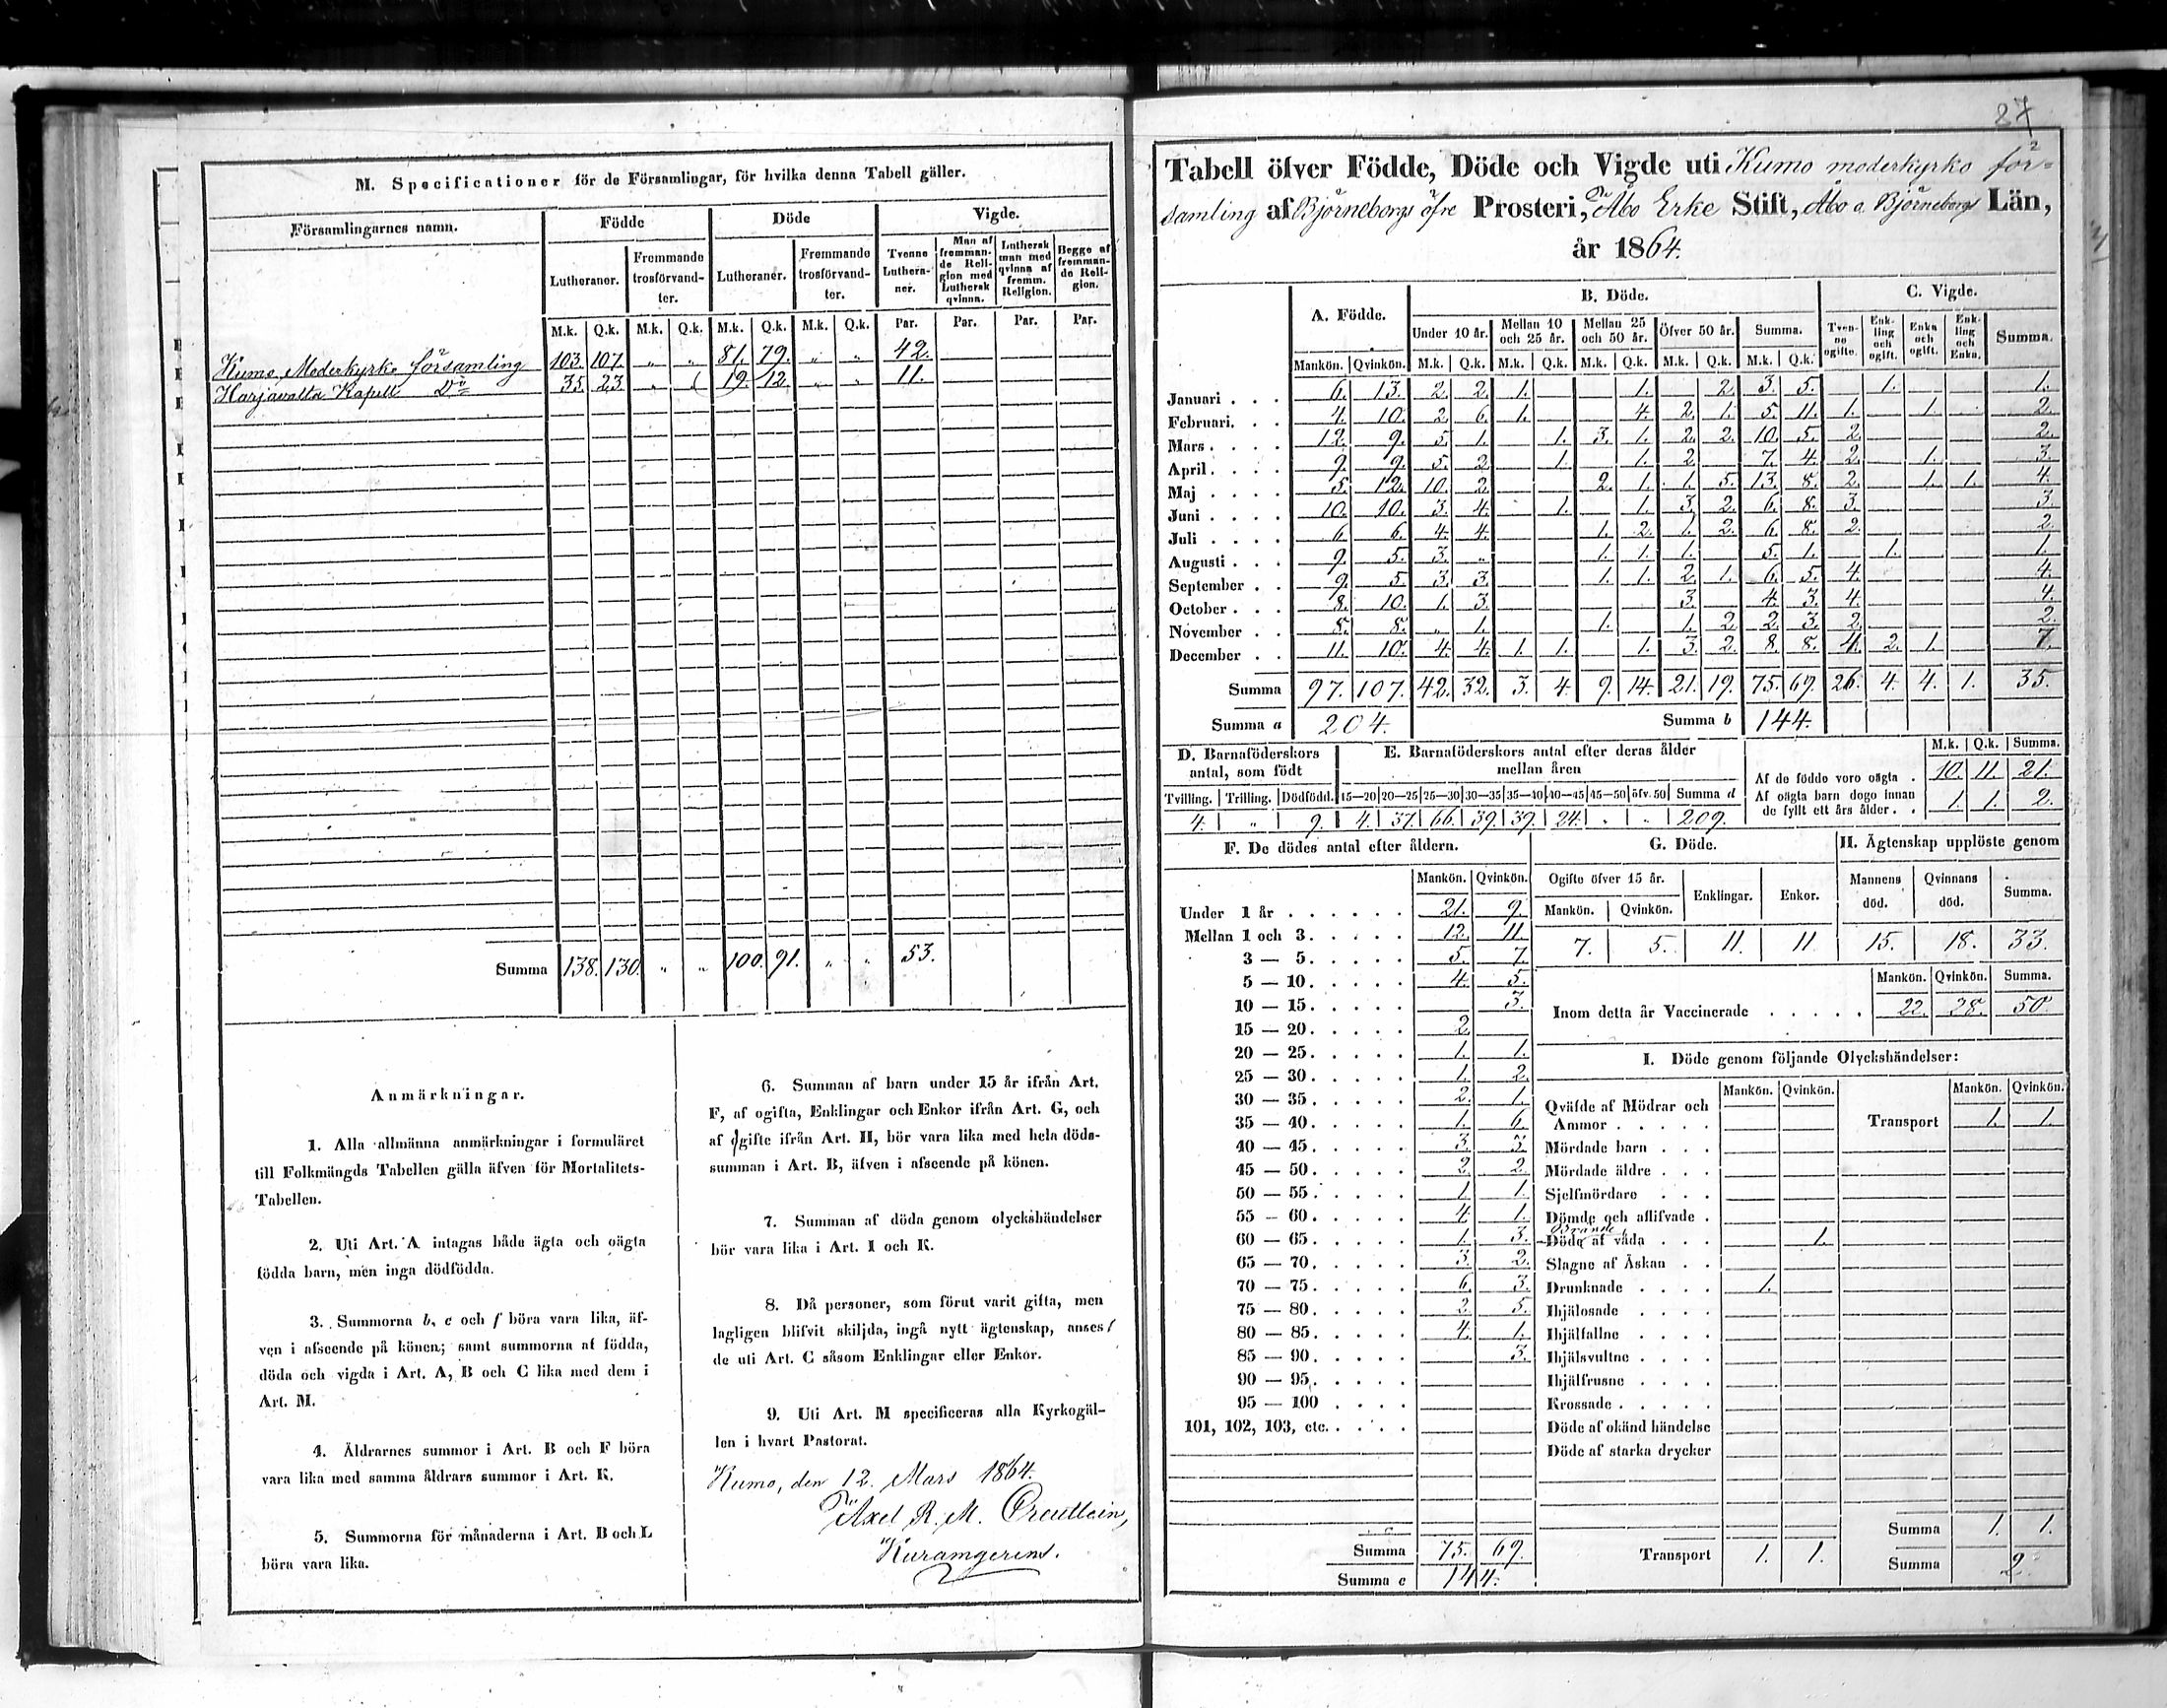 M. Specificationer för de Församlingar, för hvilka denna Tabell gäller.
Församlingarnes namn. Födde Döde Vigde.
Lutheraner. Fremmande trosförvandter. Lutheraner. Fremmande trosförvandter. Tvenne Lutheraner. Man af fremmande Religion med Luthersk qvinna. Luthersk man med qvinna af fremm. Religion. Begge af fremmande Religion.
M.k. Q.k. M.k. Q.k. M.k. Q.k. M.k. Q.k. Par. Par. Par. Par.
Kumo Moderkyrko församling 103. 107. " " 81. 79. " " 42.
Harjavalta Kapell Do 35. 23. " 19. 12. " " 11.
Summa 138. 130. " " 100. 91. " " 53.
Anmärkningar.
1. Alla allmänna anmärkningar i formuläret
till Folkmängds Tabellen gälla äfven för Mortalitets-
Tabellen.
2. Uti Art. A intagas både ägta och oägta
födda barn, men inga dödfödda.
3. Summorna b, c och f böra vara lika, äf-
ven i afseende på könen; samt summorna af födda,
döda och vigda i Art. A, B och C lika med dem i
Art. M.
4. Åldrarnes summor i Art. B och F böra
vara lika med samma åldrars summor i Art. K.
5. Summorna för månaderna i Art. B och L
böra vara lika.
6. Summan af barn under 15 år ifrån Art.
F, af ogifta, Enklingar och Enkor ifrån Art. G, och
af gifte ifrån Art. H, bör vara lika med hela döds-
summan i Art. B, äfven i afseende på könen.
7. Summan af döda genom olyckshändelser
bör vara lika i Art. I och K.
8. Då personer, som förut varit gifta, men
lagligen blifvit skiljda, ingå nytt ägtenskap, anses
de uti Art. C såsom Enklingar eller Enkor.
9. Uti Art. M specificeras alla Kyrkogäl-
len i hvart Pastorat.
Kumo, den 12. Mars 1864.
Axel R. M.
87
Tabell öfver Födde, Döde och Vigde uti Kumo moderkyrko för-
samling af Björneborgs öfre Prosteri, Åbo Erke Stift, Åbo o. Björneborgs Län,
år 1864.
A. Födde. B. Döde. C. Vigde.
Under 10 år. Mellan 10 och 25 år. Mellan 25 och 50 år. Öfver 50 år. Summa. Tvenne ogifte. Enkling och ogift. Enka och ogift. Enkling och Enka. Summa.
Mankön. Qvinkön. M.k. Q.k. M.k. Q.k. M.k. Q.k. M.k. Q.k. M.k. Q.k.
Januari . . . 6. 13. 2. 2. 1. 1. 2. 3. 5. 1. 1.
Februari. . . 4. 10. 2. 6. 1. 4. 2. 1. 5. 11. 1. 1. 2.
Mars . . . . 12. 9. 5. 1. 1. 3. 1. 2. 2. 10. 5. 2. 2.
April . . . . 9. 9. 5. 2. 1. 1. 2. 7. 4. 2. 1. 3.
Maj . . . . 5. 12. 10. 2. 2. 1. 1. 5. 13. 8. 2. 1. 1. 4.
Juni . . . . 10. 10. 3. 4. 1. 1. 3. 2. 6. 8. 3. 3.
Juli . . . . 6. 6. 4. 4. 1. 2. 1. 2. 6. 8. 2. 2.
Augusti . . . 9. 5. 3. " 1. 1. 1. 5. 1. 1. 1.
September . . 9. 5. 3. 3. 1. 1. 2. 1. 6. 5. 4. 4.
October . . . 8. 10. 1. 3. 3. 4. 3. 4. 4.
November . . 8. 8. " 1. 1. 1. 2. 2. 3. 2. 2.
December . . 11. 10. 4. 4. 1. 1. 1. 3. 2. 8. 8. 4. 2. 1. 7.
Summa 97. 107. 42. 32. 3. 4. 9. 14. 21. 19. 75. 69. 26. 4. 4. 1. 35.
Summa a 204. Summa b 144.
D. Barnaföderskors antal, som födt
Tvilling. Trilling. Dödfödd.
4. " 9.
E. Barnaföderskors antal efter deras ålder mellan åren
15—20 20—25 25—30 30—35 35—40 40—45 45—50 öfv. 50 Summa d
4. 37. 66. 39. 39. 24. " " 209.
M.k. Q.k. Summa.
Af de födde voro oägta . 10. 11. 21.
Af oägta barn dogo innan de fyllt ett års ålder . . 1. 1. 2.
F. De dödes antal efter åldern.
Mankön. Qvinkön.
Under 1 år . . . . . . 21. 9.
Mellan 1 och 3. . . . . 12. 11.
3 — 5. . . . . 5. 7.
5 — 10. . . . . 4. 5.
10 — 15. . . . . 3.
15 — 20. . . . . 2.
20 — 25. . . . . 1. 1.
25 — 30. . . . . 1. 2.
30 — 35. . . . . 2. 1.
35 — 40. . . . . 1. 6.
40 — 45. . . . . 3. 3.
45 — 50. . . . . 2. 2.
50 — 55. . . . . 1. 1.
55 — 60. . . . . 4. 1.
60 — 65. . . . . 1. 3.
65 — 70. . . . . 3. 2.
70 — 75. . . . . 6. 3.
75 — 80. . . . . 2. 5.
80 — 85. . . . . 4. 1.
85 — 90. . . . . 3.
90 — 95. . . . .
95 — 100 . . . .
101, 102, 103, etc. . . . .
Summa 75. 69.
Summa c 144.
G. Döde.
Ogifte öfver 15 år. Enklingar. Enkor.
Mankön. Qvinkön.
7. 5. 11. 11
H. Ägtenskap upplöste genom
Mannens död. Qvinnans död. Summa.
15. 18. 33.
Mankön. Qvinkön. Summa.
Inom detta år Vaccinerade . . . . . 22. 28. 50.
I. Döde genom följande Olyckshändelser:
Mankön. Qvinkön. Mankön. Qvinkön.
Qväfde af Mödrar och
Ammor . . . . . Transport 1. 1.
Mördade barn . . .
Mördade äldre . . .
Sjelfmördare . . .
Dömde och aflifvade .
Döde af våda . . . 1.
Slagne af Åskan . .
Drunknade . . . . 1.
Ihjälosade . . . .
Ihjälfallne . . . .
Ihjälsvultne . . . .
Ihjälfrusne . . . .
Krossade . . . . .
Döde af okänd händelse
Döde af starka drycker
Summa 1. 1.
Transport 1. 1. Summa 2.